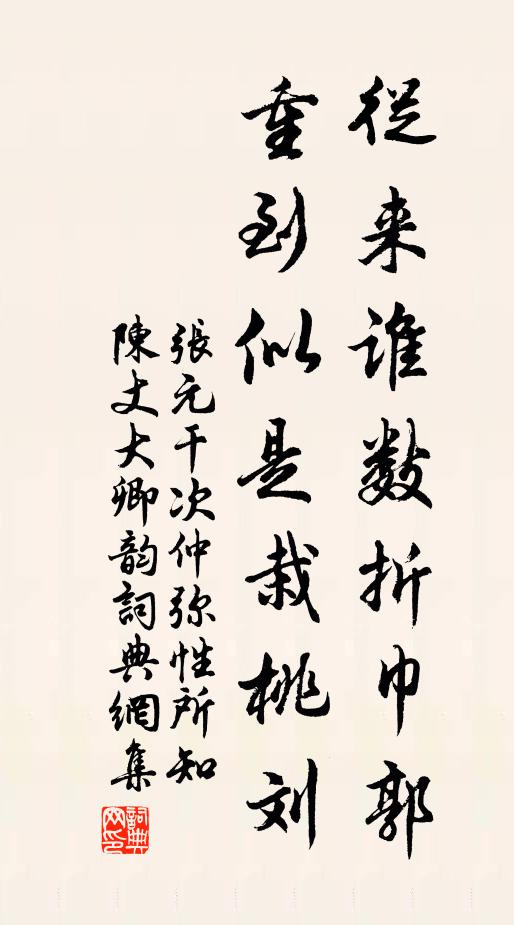 從来誰数折巾郭
重到似是栽桃刘
張元干次仲弥性所知
陳丈大卿韵詞典網集
詞典网印